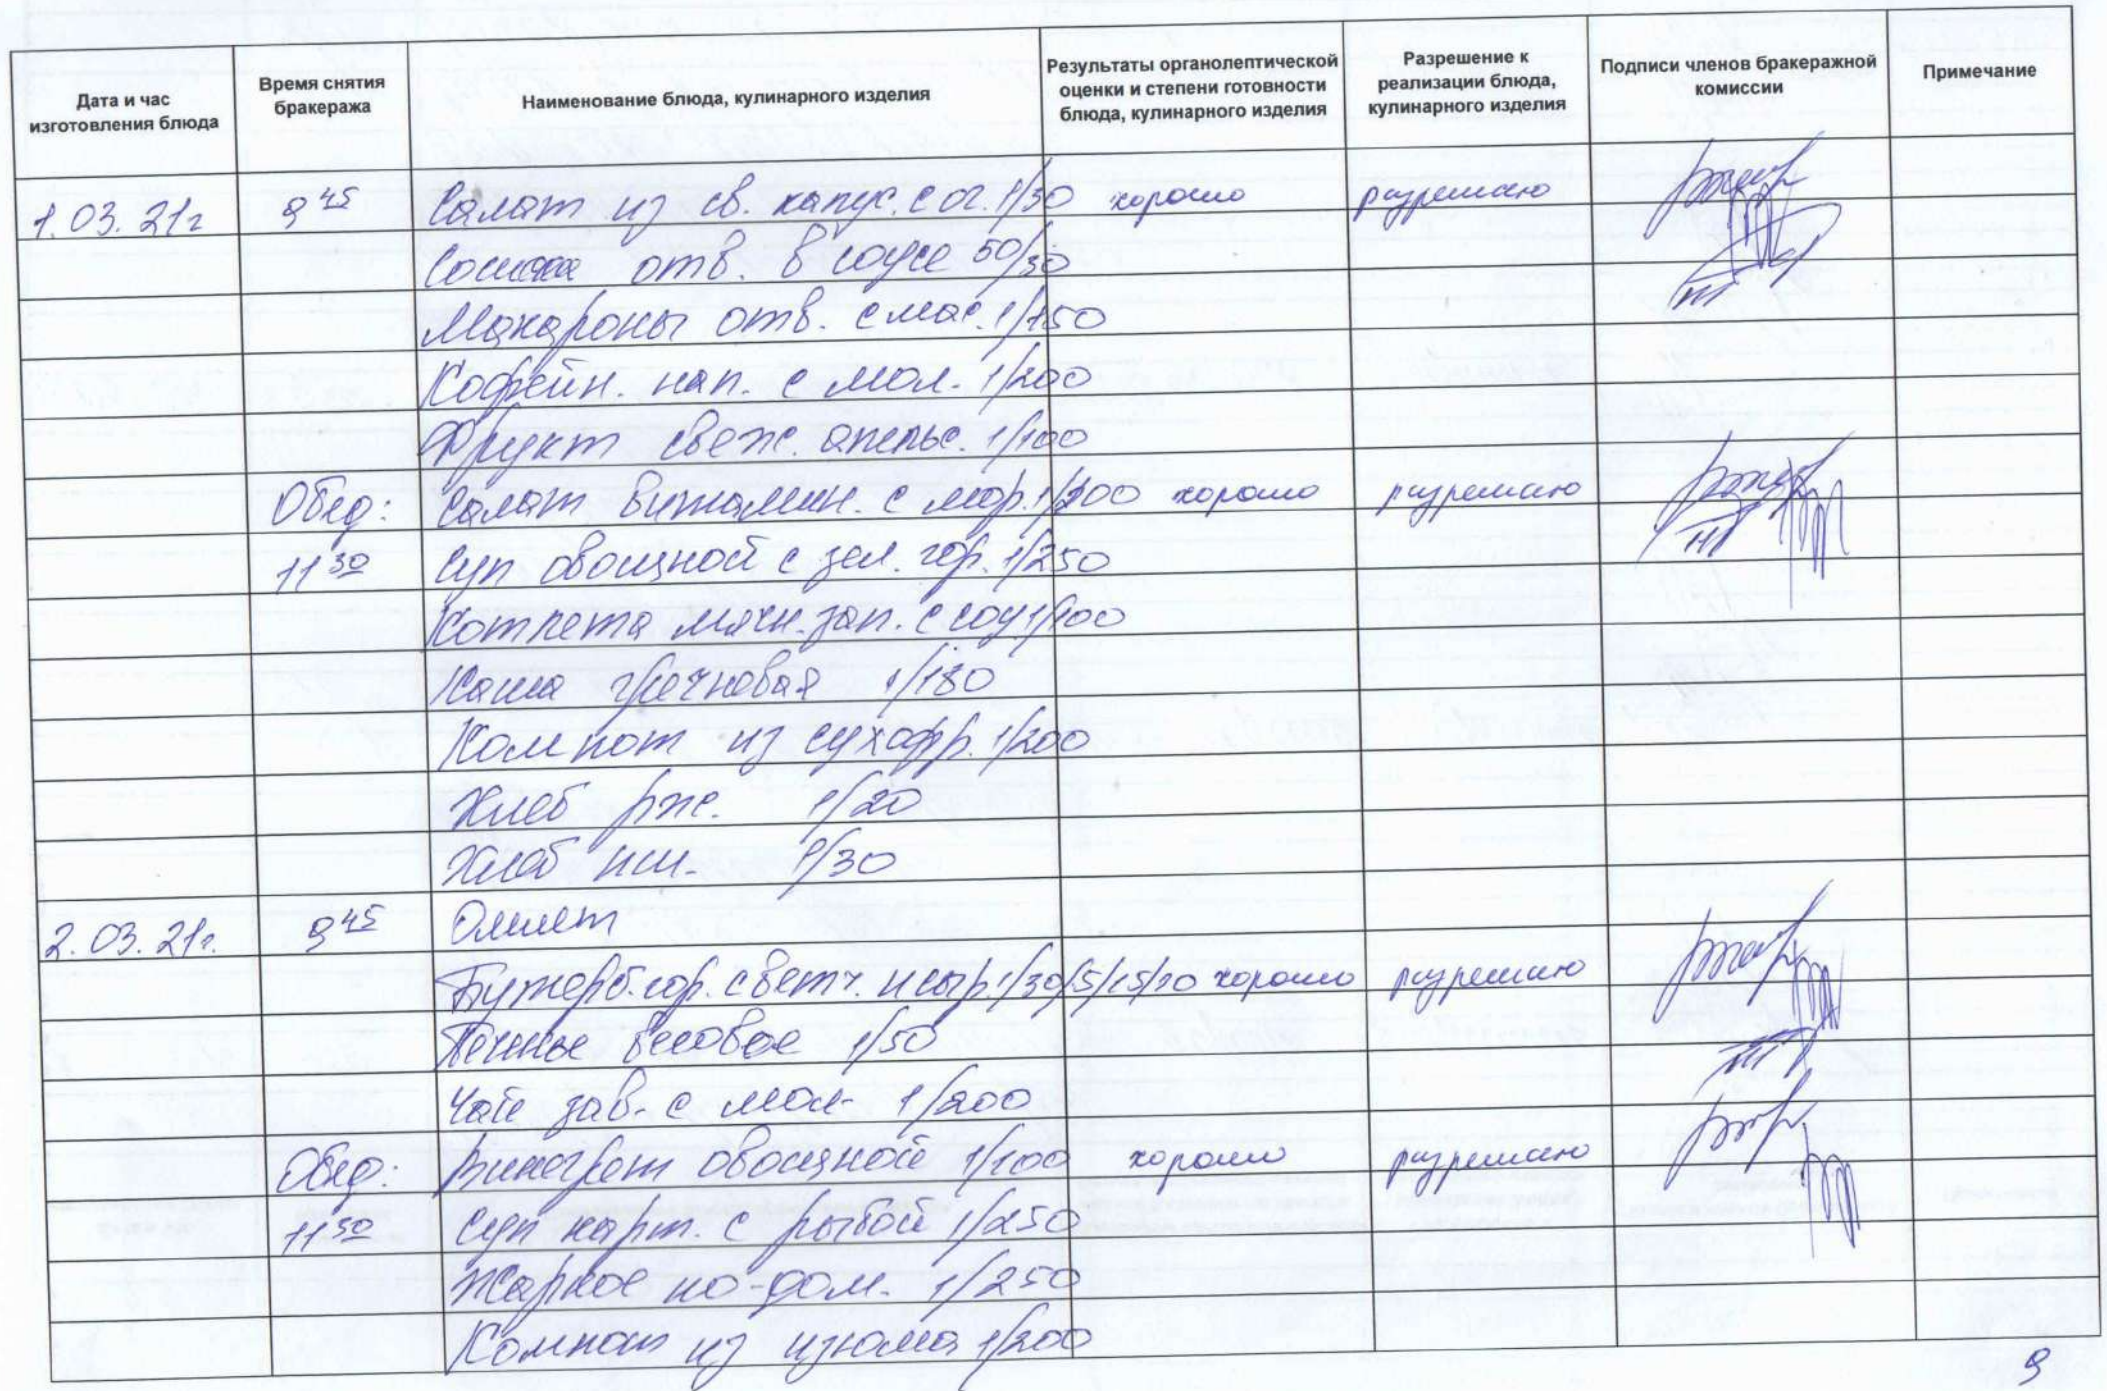 Дата и час изготовления блюда
Время снятия бракеража
Наименование блюда, кулинарного изделия
Результаты органолептической оценки и степени готовности блюда, кулинарного изделия
Разрешение к реализации блюда, кулинарного изделия
Подписи членов бракеражной комиссии
Примечание
1.03.21г 9 45 Салат из св. капус. с ог. 1/30 хорошо разрешаю
отв. в соусе 50/30
Макароны отв. с мас. 1/150
Кофейн. нап. с мол. 1/200
Фрукт свеж. апельс. 1/100
Обед: Салат витамин. с мор. 1/100 хорошо разрешаю
11 30 Суп овощной с зел. гор. 1/250
Котлета мясн. зап. с соу 1/100
Каша гречневая 1/180
Компот из сухофр. 1/200
Хлеб рж. 1/20
Хлеб пш. 1/30
2.03.21г. 9 45 Омлет
Бутерб. гор. с ветч. и сыр. 1/30/5/15/10 хорошо разрешаю
Печенье весовое 1/50
Чай зав. с мол. 1/200
Обед: Винегрет овощной 1/100 хорошо разрешаю
11 30 Суп карт. с рыбой 1/250
Жаркое по-дом. 1/250
Компот из изюма 1/200
9